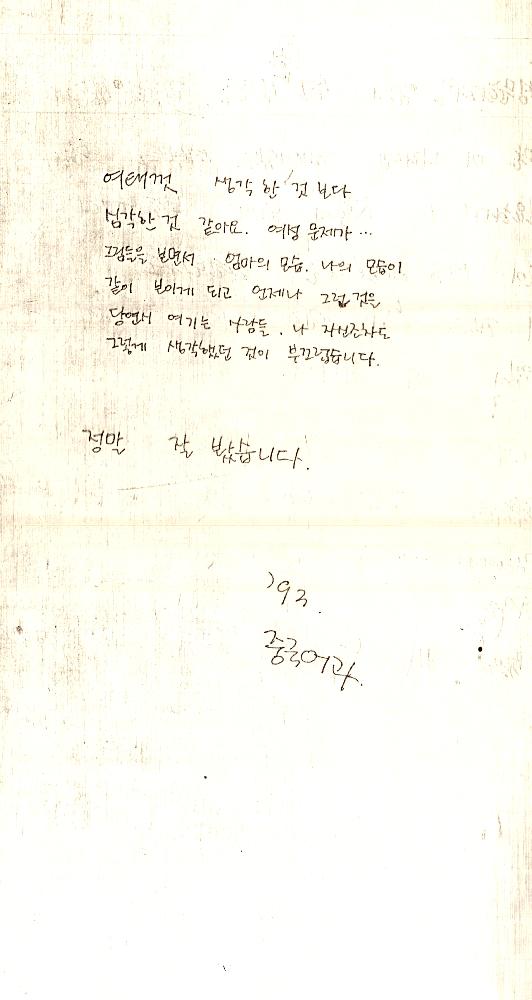 여태껏 생각한 것 보다
심각한 것 같아요. 여성 문제가...
그림들을 보면서 엄마의 모습. 나의 모습이
같이 보이게 되고 언제나 그런 것을
당연시 여기는 사람들. 나 자신조차도
그렇게 생각했던 것이 부끄럽습니다.
정말 잘 봤습니다.
'93.
중국어과.